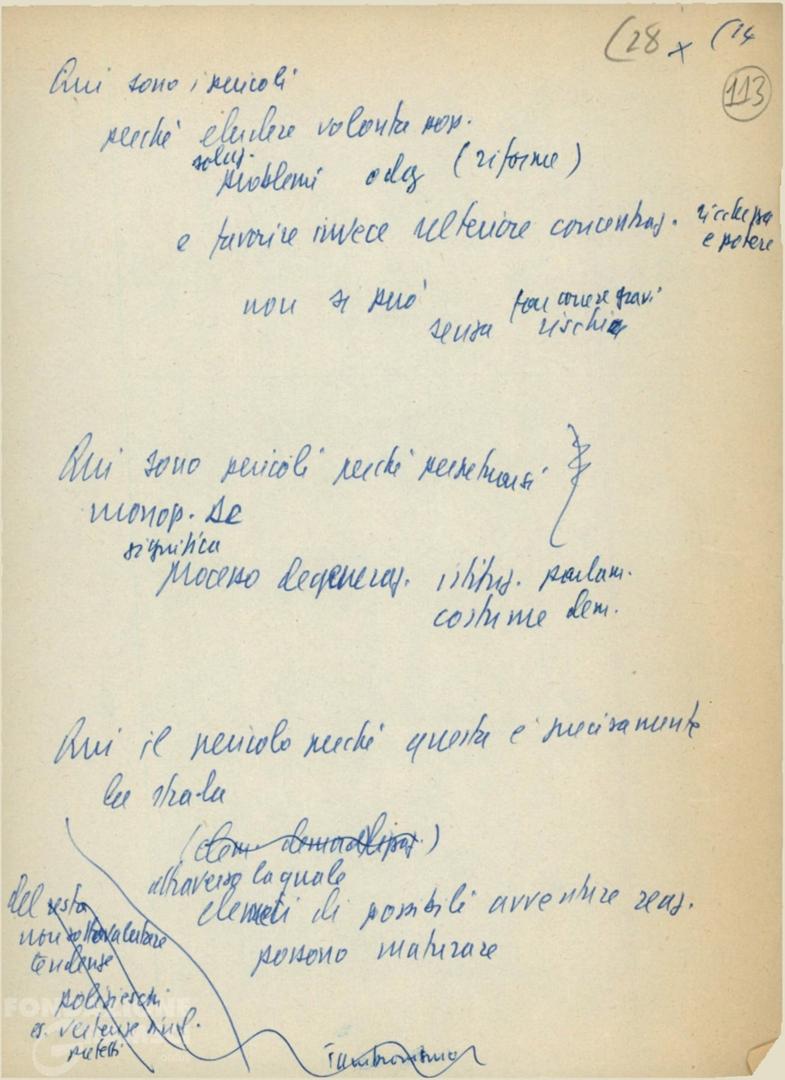 (28 x (14
113
Qui sono i pericoli
perché eludere volontà pop.
soluz.
problemi odg (riforme)
e favorire invece ulteriore concentraz. ricchezza
e potere
non si può
senza far correre gravi
rischi
Qui sono pericoli perché perpetuarsi
monop. DC
significa
processo degeneraz. istituz. parlam.
costume dem.
Qui il pericolo perché questa è precisamente
la strada
attraverso la quale
elementi di possibili avventure reaz.
possono maturare
del resto
non sottovalutare
tendenze
polizieschi
es. vertenze sind.
FONDAZIONE